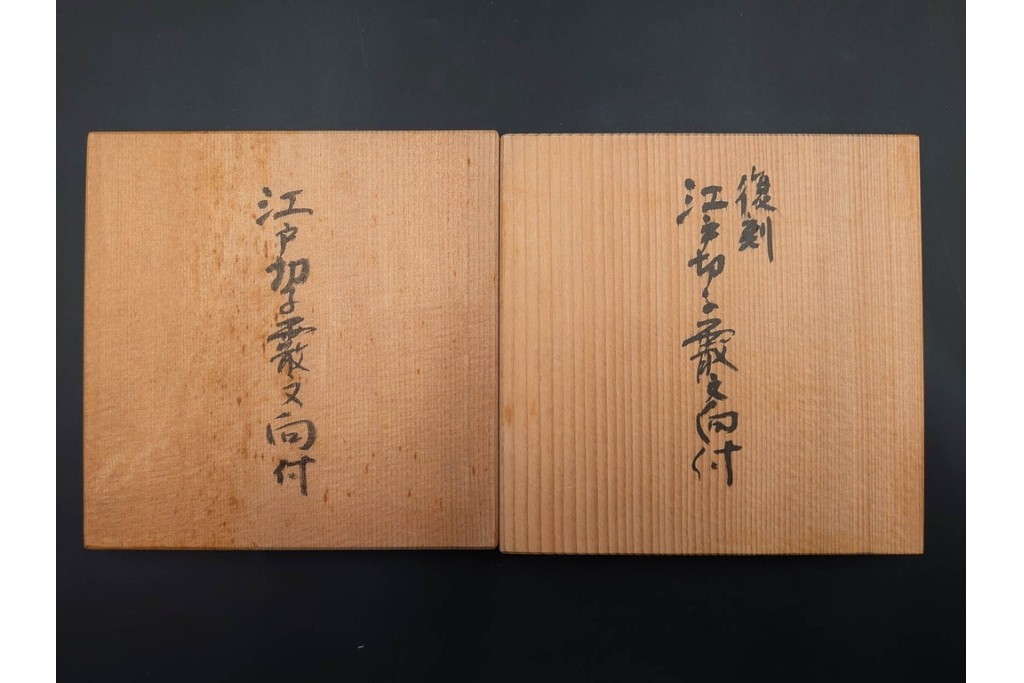 江戸切子霰文向付
復刻
江戸切子霰文向付